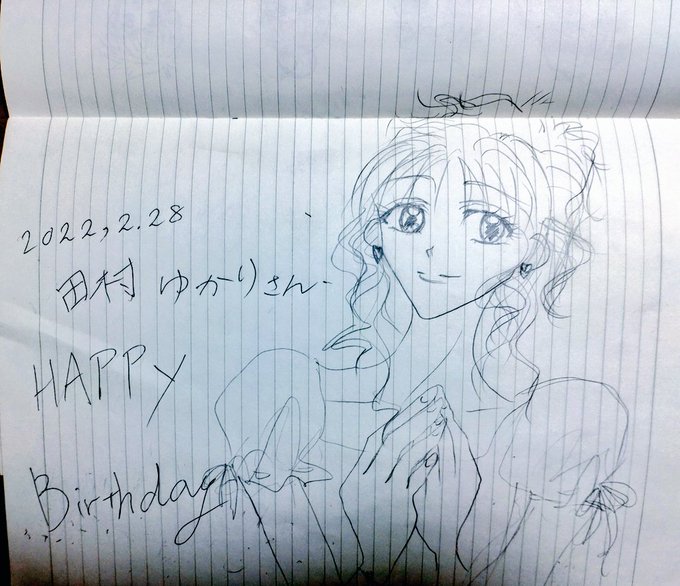 2022,2.28
田村 ゆかりさん
HAPPY
Birthday